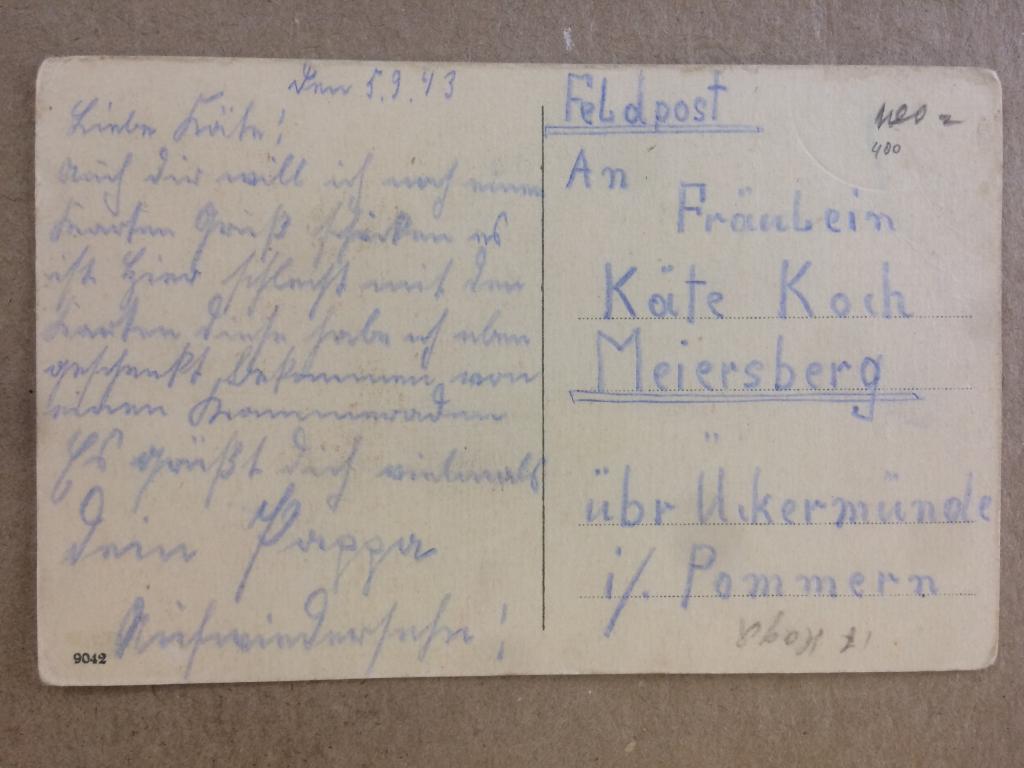 Den 5.9.43
Liebe Käte!
Auch dir will ich noch einen
Karten Gruß schicken es
ist hier schlecht mit den
Karten diese habe ich eben
geschenkt bekommen von
einen Kammeraden
Es grüßt dich vielmals
dein Pappa
Aufwiedersehn!
9042
Feldpost
An
Fräulein
Käte Koch
Meiersberg
übr Uckermünde
i/. Pommern
400